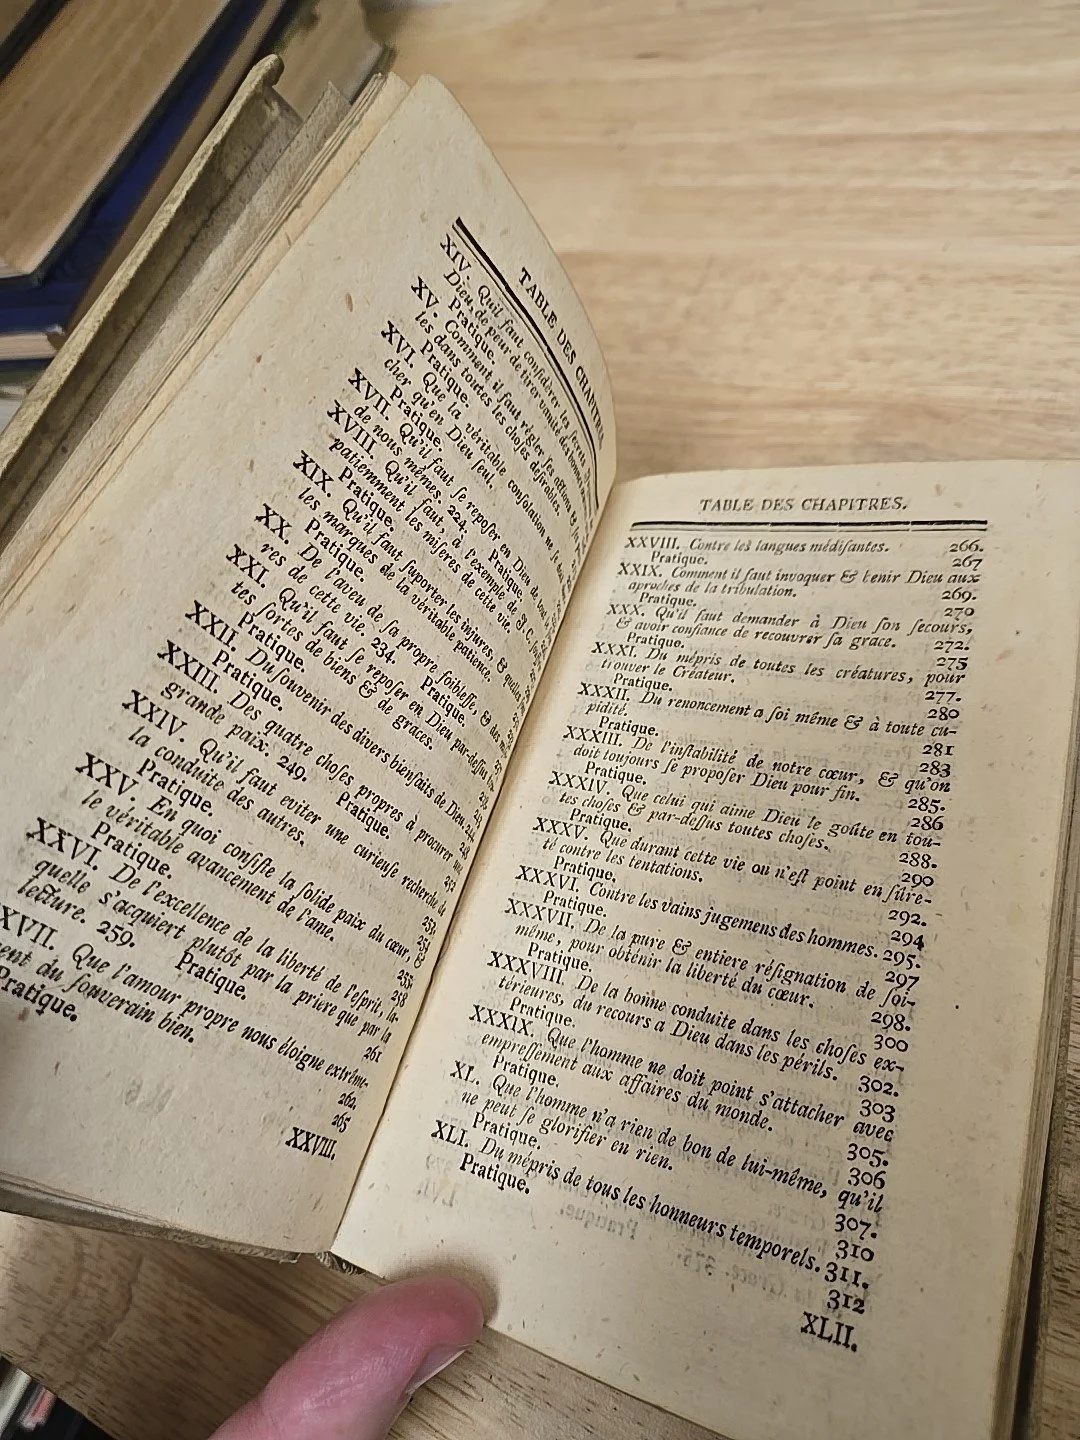 TABLE DES CHAPITRES
XIV. Quil faut considérer les secrets
Dieu, de peur de tirer vanité des bonnes
Pratique.
XV. Comment il faut régler ses
les dans toutes les choses desirables.
Pratique.
XVI. Que la véritable consolation ne se
cher qu'en Dieu seul.
Pratique.
XVII. Qu'il faut se reposer en Dieu de tout
de nous mêmes. 224. Pratique.
XVIII. Qu'il faut, à l'exemple de J. C.
patiemment les miseres de cette vie.
Pratique.
XIX. Qu'il faut suporter les injures, &
les marques de la véritable patience.
Pratique.
XX. De l'aveu de sa propre foiblesse, & des
res de cette vie. 234. Pratique.
XXI. Qu'il faut se reposer en Dieu par-dessus
tes sortes de biens & de graces.
Pratique.
XXII. Du souvenir des divers bienfaits de Dieu.
Pratique.
XXIII. Des quatre choses propres à procurer une
grande paix. 249. Pratique.
XXIV. Qu'il faut eviter une curieuse recherche de
la conduite des autres.
Pratique. 254
XXV. En quoi consiste la solide paix du cœur, &
le véritable avancement de l'ame. 255.
Pratique. 258
XXVI. De l'excellence de la liberté de l'esprit, la-
quelle s'acquiert plutôt par la priere que par la
lecture. 259. Pratique. 261
XXVII. Que l'amour propre nous éloigne extrême-
ment du souverain bien. 262.
Pratique. 265
XXVIII.
TABLE DES CHAPITRES.
XXVIII. Contre les langues médisantes. 266.
Pratique. 267
XXIX. Comment il faut invoquer & benir Dieu aux
aproches de la tribulation. 269.
Pratique. 270
XXX. Qu'il faut demander à Dieu son secours,
& avoir confiance de recouvrer sa grace. 272.
Pratique. 275
XXXI. Du mépris de toutes les créatures, pour
trouver le Créateur. 277.
Pratique. 280
XXXII. Du renoncement a soi même & à toute cu-
pidité. 281
Pratique. 283
XXXIII. De l'instabilité de notre cœur, & qu'on
doit toujours se proposer Dieu pour fin. 285.
Pratique. 286
XXXIV. Que celui qui aime Dieu le goûte en tou-
tes choses & par-dessus toutes choses. 288.
Pratique. 290
XXXV. Que durant cette vie on n'est point en sûre-
té contre les tentations. 292.
Pratique. 294
XXXVI. Contre les vains jugemens des hommes. 295.
Pratique. 297
XXXVII. De la pure & entiere résignation de soi-
même, pour obtenir la liberté du cœur. 298.
Pratique. 300
XXXVIII. De la bonne conduite dans les choses ex-
térieures, du recours a Dieu dans les périls. 302.
Pratique. 303
XXXIX. Que l'homme ne doit point s'attacher avec
empressement aux affaires du monde. 305.
Pratique. 306
XL. Que l'homme n'a rien de bon de lui-même, qu'il
ne peut se glorifier en rien. 307.
Pratique. 310
XLI. Du mépris de tous les honneurs temporels. 311.
Pratique. 312
XLII.